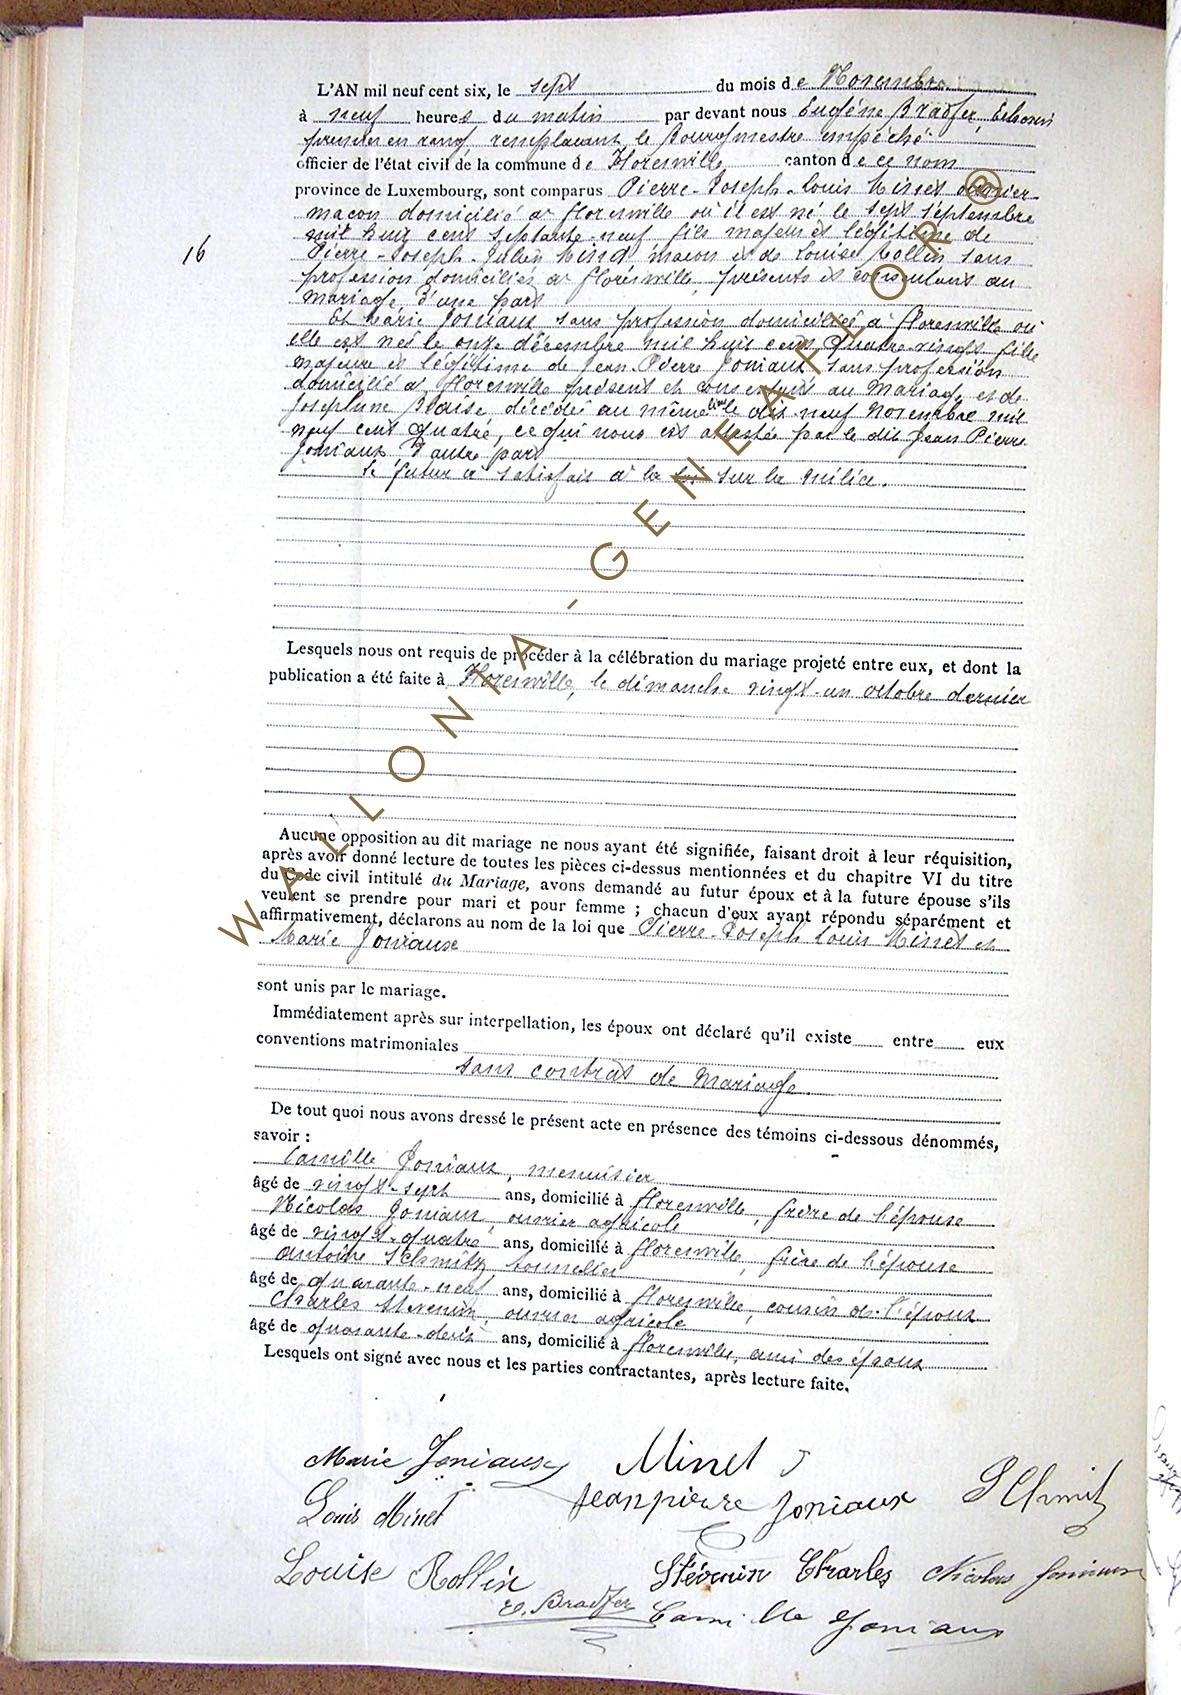 L'AN mil neuf cent six, le sept du mois de Novembre
à neuf heures du matin par devant nous Eugène Bradfer, Echevin
premier en rang, remplacant le Bourgmestre empêché
officier de l'état civil de la commune de Florenville canton de ce nom
province de Luxembourg, sont comparus Pierre-Joseph-Louis Minet ouvrier
maçon domicilié à Florenville où il est né le sept septembre
mil huit cent septante-neuf fils majeur et légitime de
16
Pierre-Joseph-Julien Minet maçon et de Louise Rollin sans
profession domiciliés à Florenville, présents et consentans au
mariage, d'une part
Et Marie Joniaux sans profession domiciliée à Florenville où
elle est née le onze décembre mil huit cent quatre-vingt fille
majeure et légitime de Jean Pierre Joniaux sans profession
domicilié à Florenville présent et consentant au Mariage, et de
Joséphine Blaise, décédée au même lieu le dix neuf novembre mil
neuf cent quatre, ce qui nous est attestée par le dit Jean Pierre
Joniaux d'autre part
Le futur a satisfait à la loi sur la milice.
Lesquels nous ont requis de procéder à la célébration du mariage projeté entre eux, et dont la
publication a été faite à Florenville, le dimanche vingt-un octobre dernier
Aucune opposition au dit mariage ne nous ayant été signifiée, faisant droit à leur réquisition,
après avoir donné lecture de toutes les pièces ci-dessus mentionnées et du chapitre VI du titre
du Code civil intitulé du Mariage, avons demandé au futur époux et à la future épouse s'ils
veulent se prendre pour mari et pour femme ; chacun d'eux ayant répondu séparément et
affirmativement, déclarons au nom de la loi que Pierre-Joseph Louis Minet et
Marie Joniaux
sont unis par le mariage.
Immédiatement après sur interpellation, les époux ont déclaré qu'il existe entre eux
conventions matrimoniales
sans contrat de Mariage.
De tout quoi nous avons dressé le présent acte en présence des témoins ci-dessous dénommés,
savoir :
Camille Joniaux, menuisier
âgé de vingt-sept ans, domicilié à Florenville, frère de l'épouse
Nicolas Joniaux, ouvrier agricole
âgé de vingt-quatre ans, domicilié à Florenville, frère de l'épouse
Antoine Schmitz tonnelier
âgé de quarante-neuf ans, domicilié à Florenville, cousin de l'époux
Charles Stevenin, ouvrier agricole
âgé de quarante-deux ans, domicilié à Florenville, ami des époux
Lesquels ont signé avec nous et les parties contractantes, après lecture faite.
Marie Joniaux Minet J
Louis Minet Jeanpierre Joniaux SChmitz
Louise Rollin Stévenin Charles Nicolas Joniaux
E. Bradfer Camille Joniaux
WALLONIA-GENEAFLOR ®